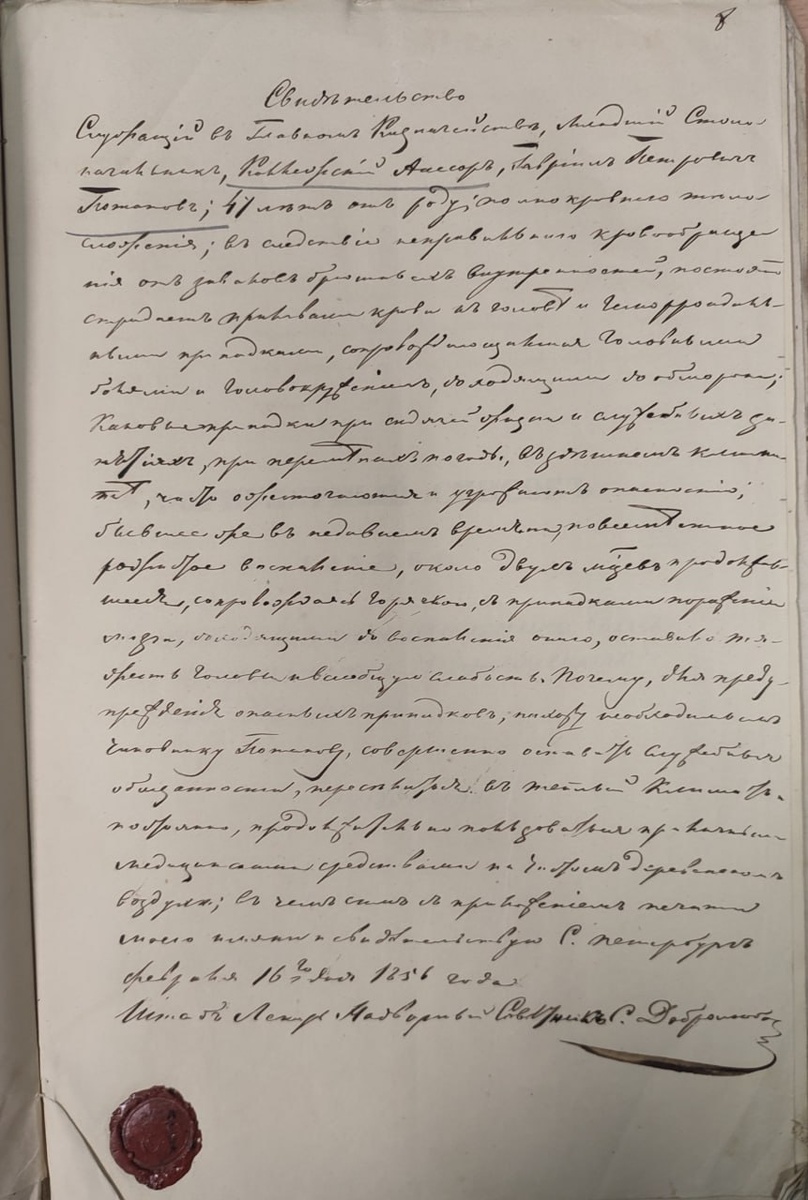 8
Свидѣтельство
Служащій въ Главномъ Казначействѣ, Младшій Столо-
начальникъ, Коллежскій Ассесоръ, Гавріилъ Петровичъ
Потаповъ; 47 лѣтъ отъ роду; полнокровнаго тѣло-
сложенія; въ слѣдствіе неправильнаго кровообраще-
нія отъ заваловъ брюшныхъ внутренностей, постоянно
страдаетъ приливами крови къ головѣ и геморроидаль-
ными припадками, сопровождающимися головными
болями и головокруженіемъ, доходящими до обморока;
Каковые припадки при сидячей жизни и служебныхъ за-
нятіяхъ, при перемѣнахъ погоды, въ здѣшнемъ клима-
тѣ, часто ожесточаются и угрожаютъ опасностію;
бывшее же въ недавнемъ времени, повсемѣстное
рожистое воспаленіе, около двухъ мѣсяцевъ продолжав-
шееся, сопровождаясь горячкою, съ припадками пораженія
мозга, доходящими до воспаленія онаго, оставило тя-
жесть головы и всеобщую слабость. Почему, для преду-
прежденія опасныхъ припадковъ, нахожу необходимымъ
Чиновнику Потапову, совершенно оставить служебныя
обязанности, переселиться въ теплый Климатъ
и продолжительно пользоваться приличными
медицинскими средствами на чистомъ деревенскомъ
воздухѣ; въ чемъ симъ съ приложеніемъ печати
моего имени и свидѣтельствую С. Петербургъ
февраля 16го дня 1856 года
Штабъ Лекарь Надворный Совѣтникъ С. Добронравовъ